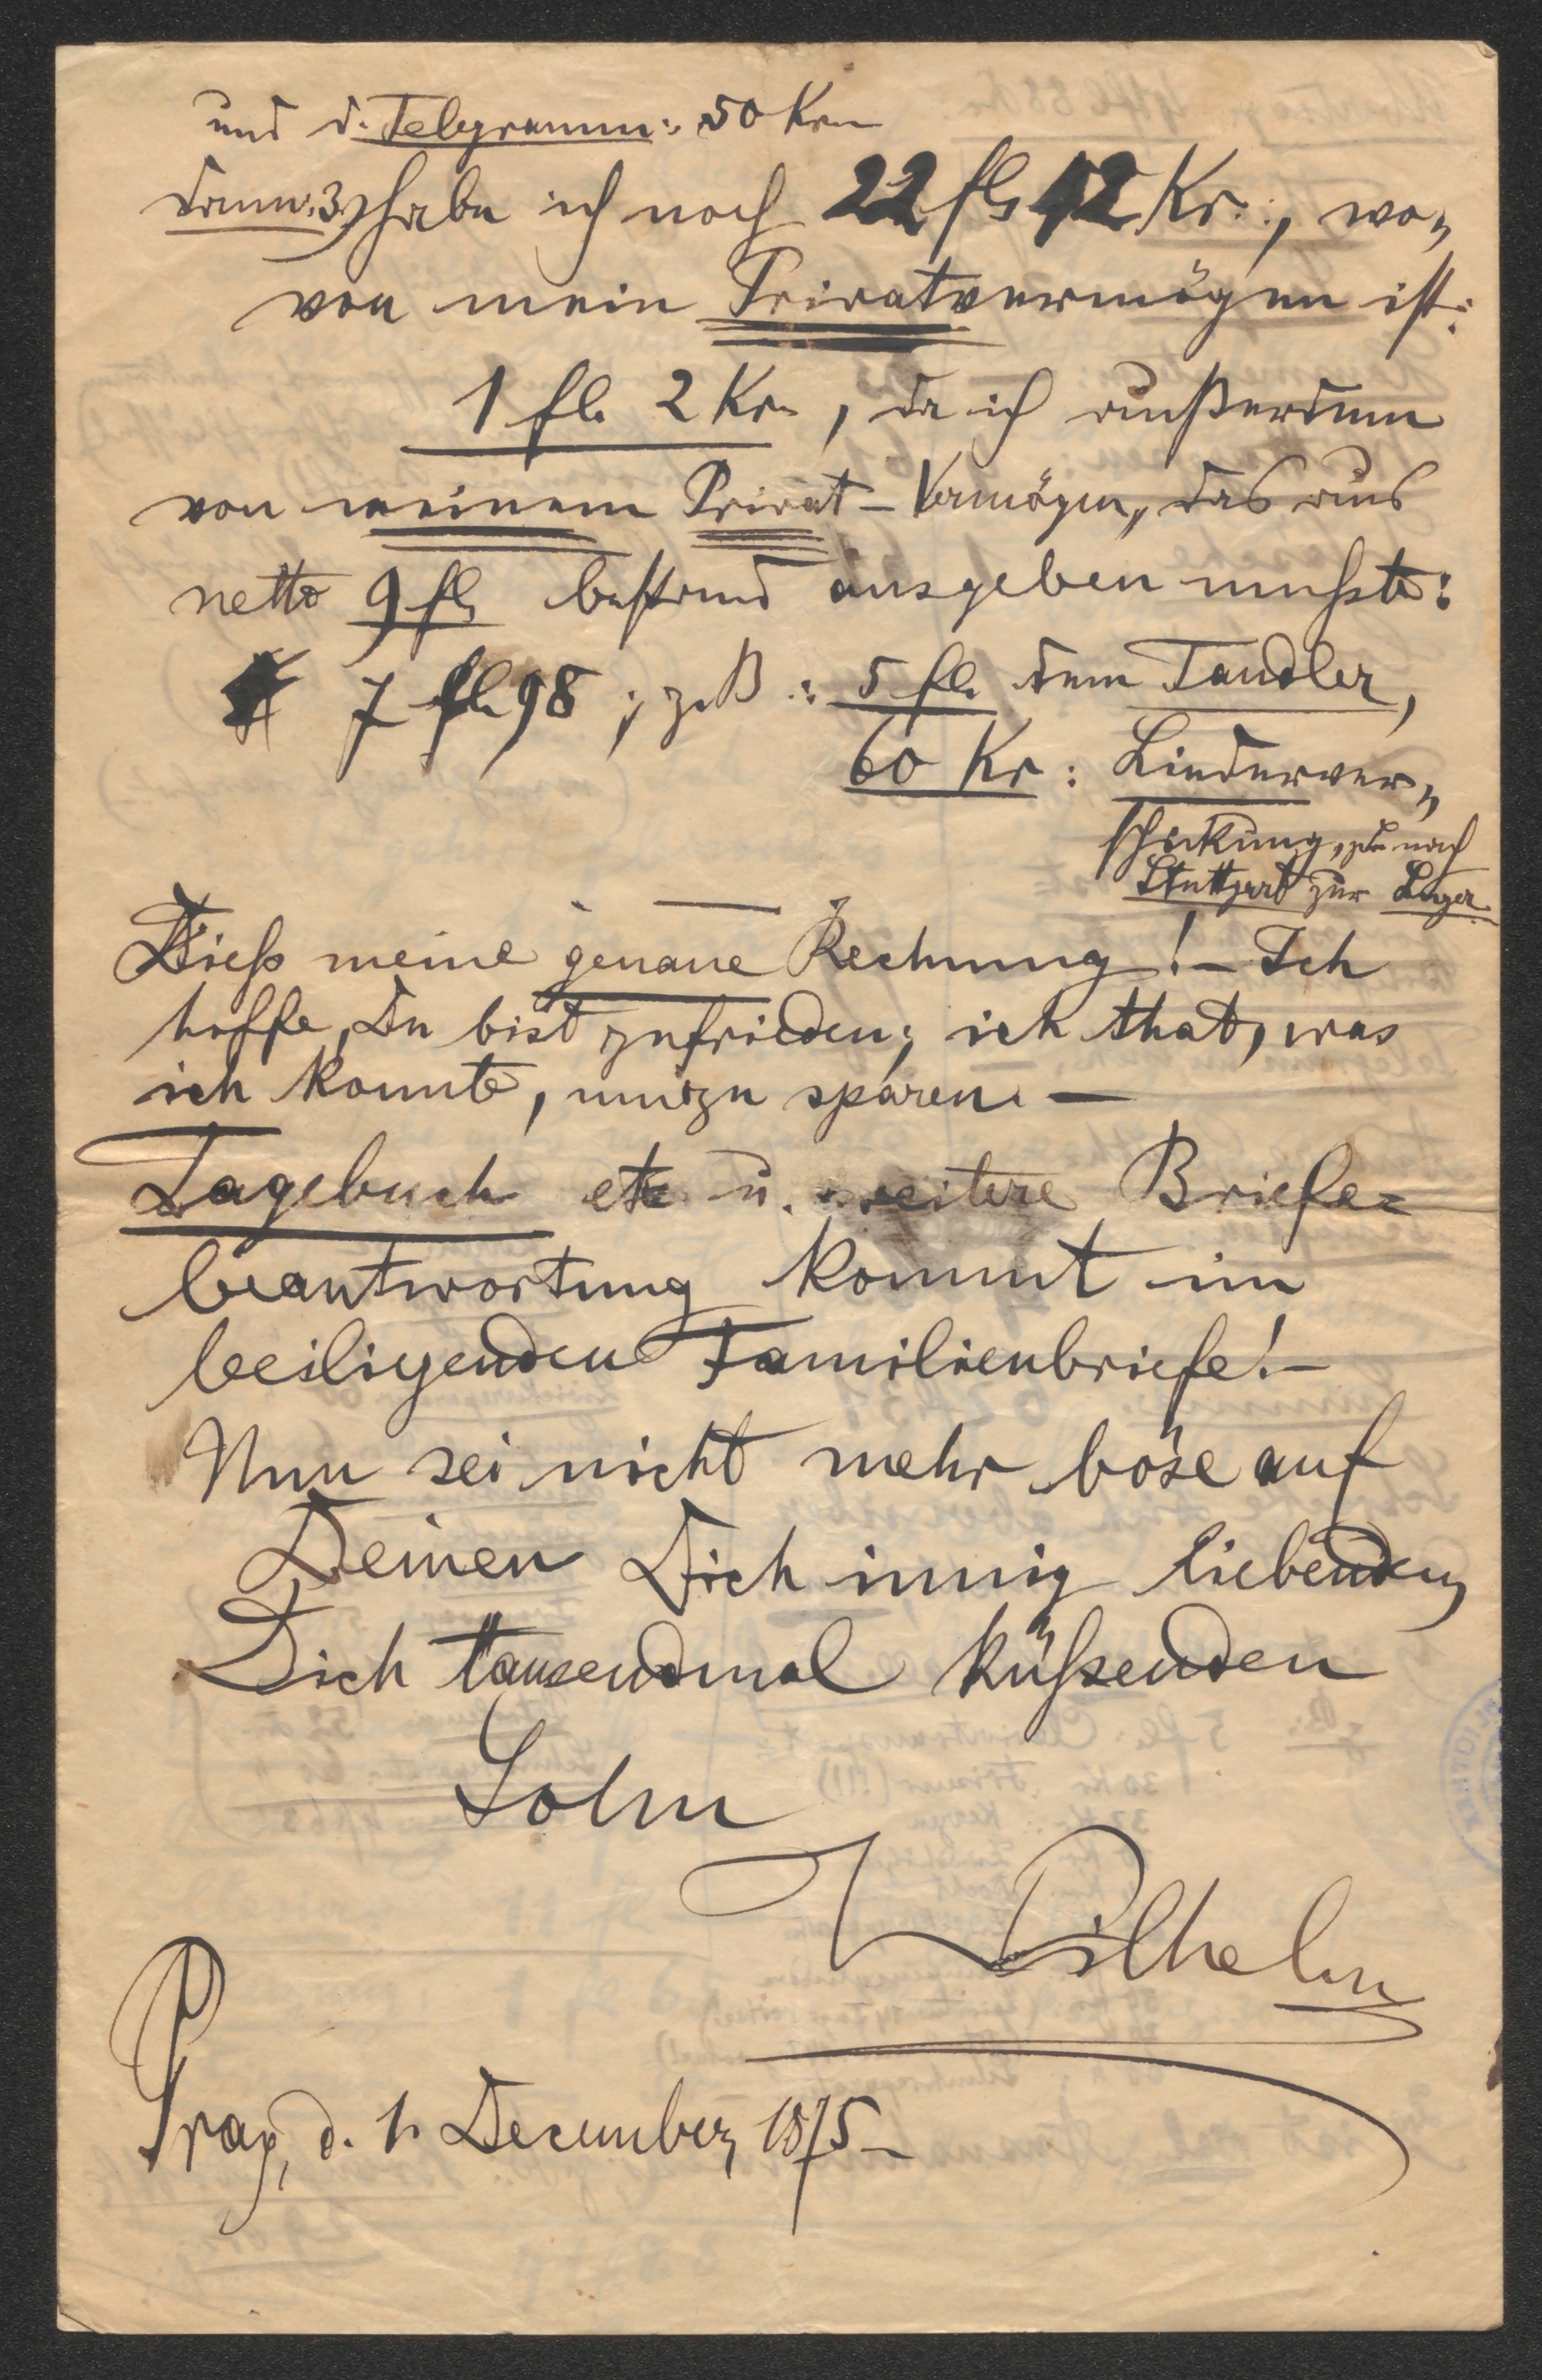 und d. Telegramm: 50 Kr.
dann: 3) habe ich noch 22 fl. 42 Kr., wo„
von mein Privatvermögen ist:
1 fl. 2 Kr., da ich außerdem
von meinem Privat-Vermögen, das aus
netto 9 fl. bestand ausgeben mußte:
7 fl. 98; z. B.: 5 fl. dem Tandler,
60 Kr.: Liederver„
schickung, nach
Stuttgart zur
Dieß meine genaue Rechnung! – Ich
hoffe, Du bist zufrieden; ich that, was
ich konnte, um zu sparen. –
Tagebuch etc. u. weitere Briefe=
beantwortung kommt im
beiligenden Familienbriefe! –
Nun sei nicht mehr böse auf
Deinen Dich innig liebenden,
Dich tausendmal küßenden
Sohn
Wilhelm
Prag, d. 1. December, 1875 –